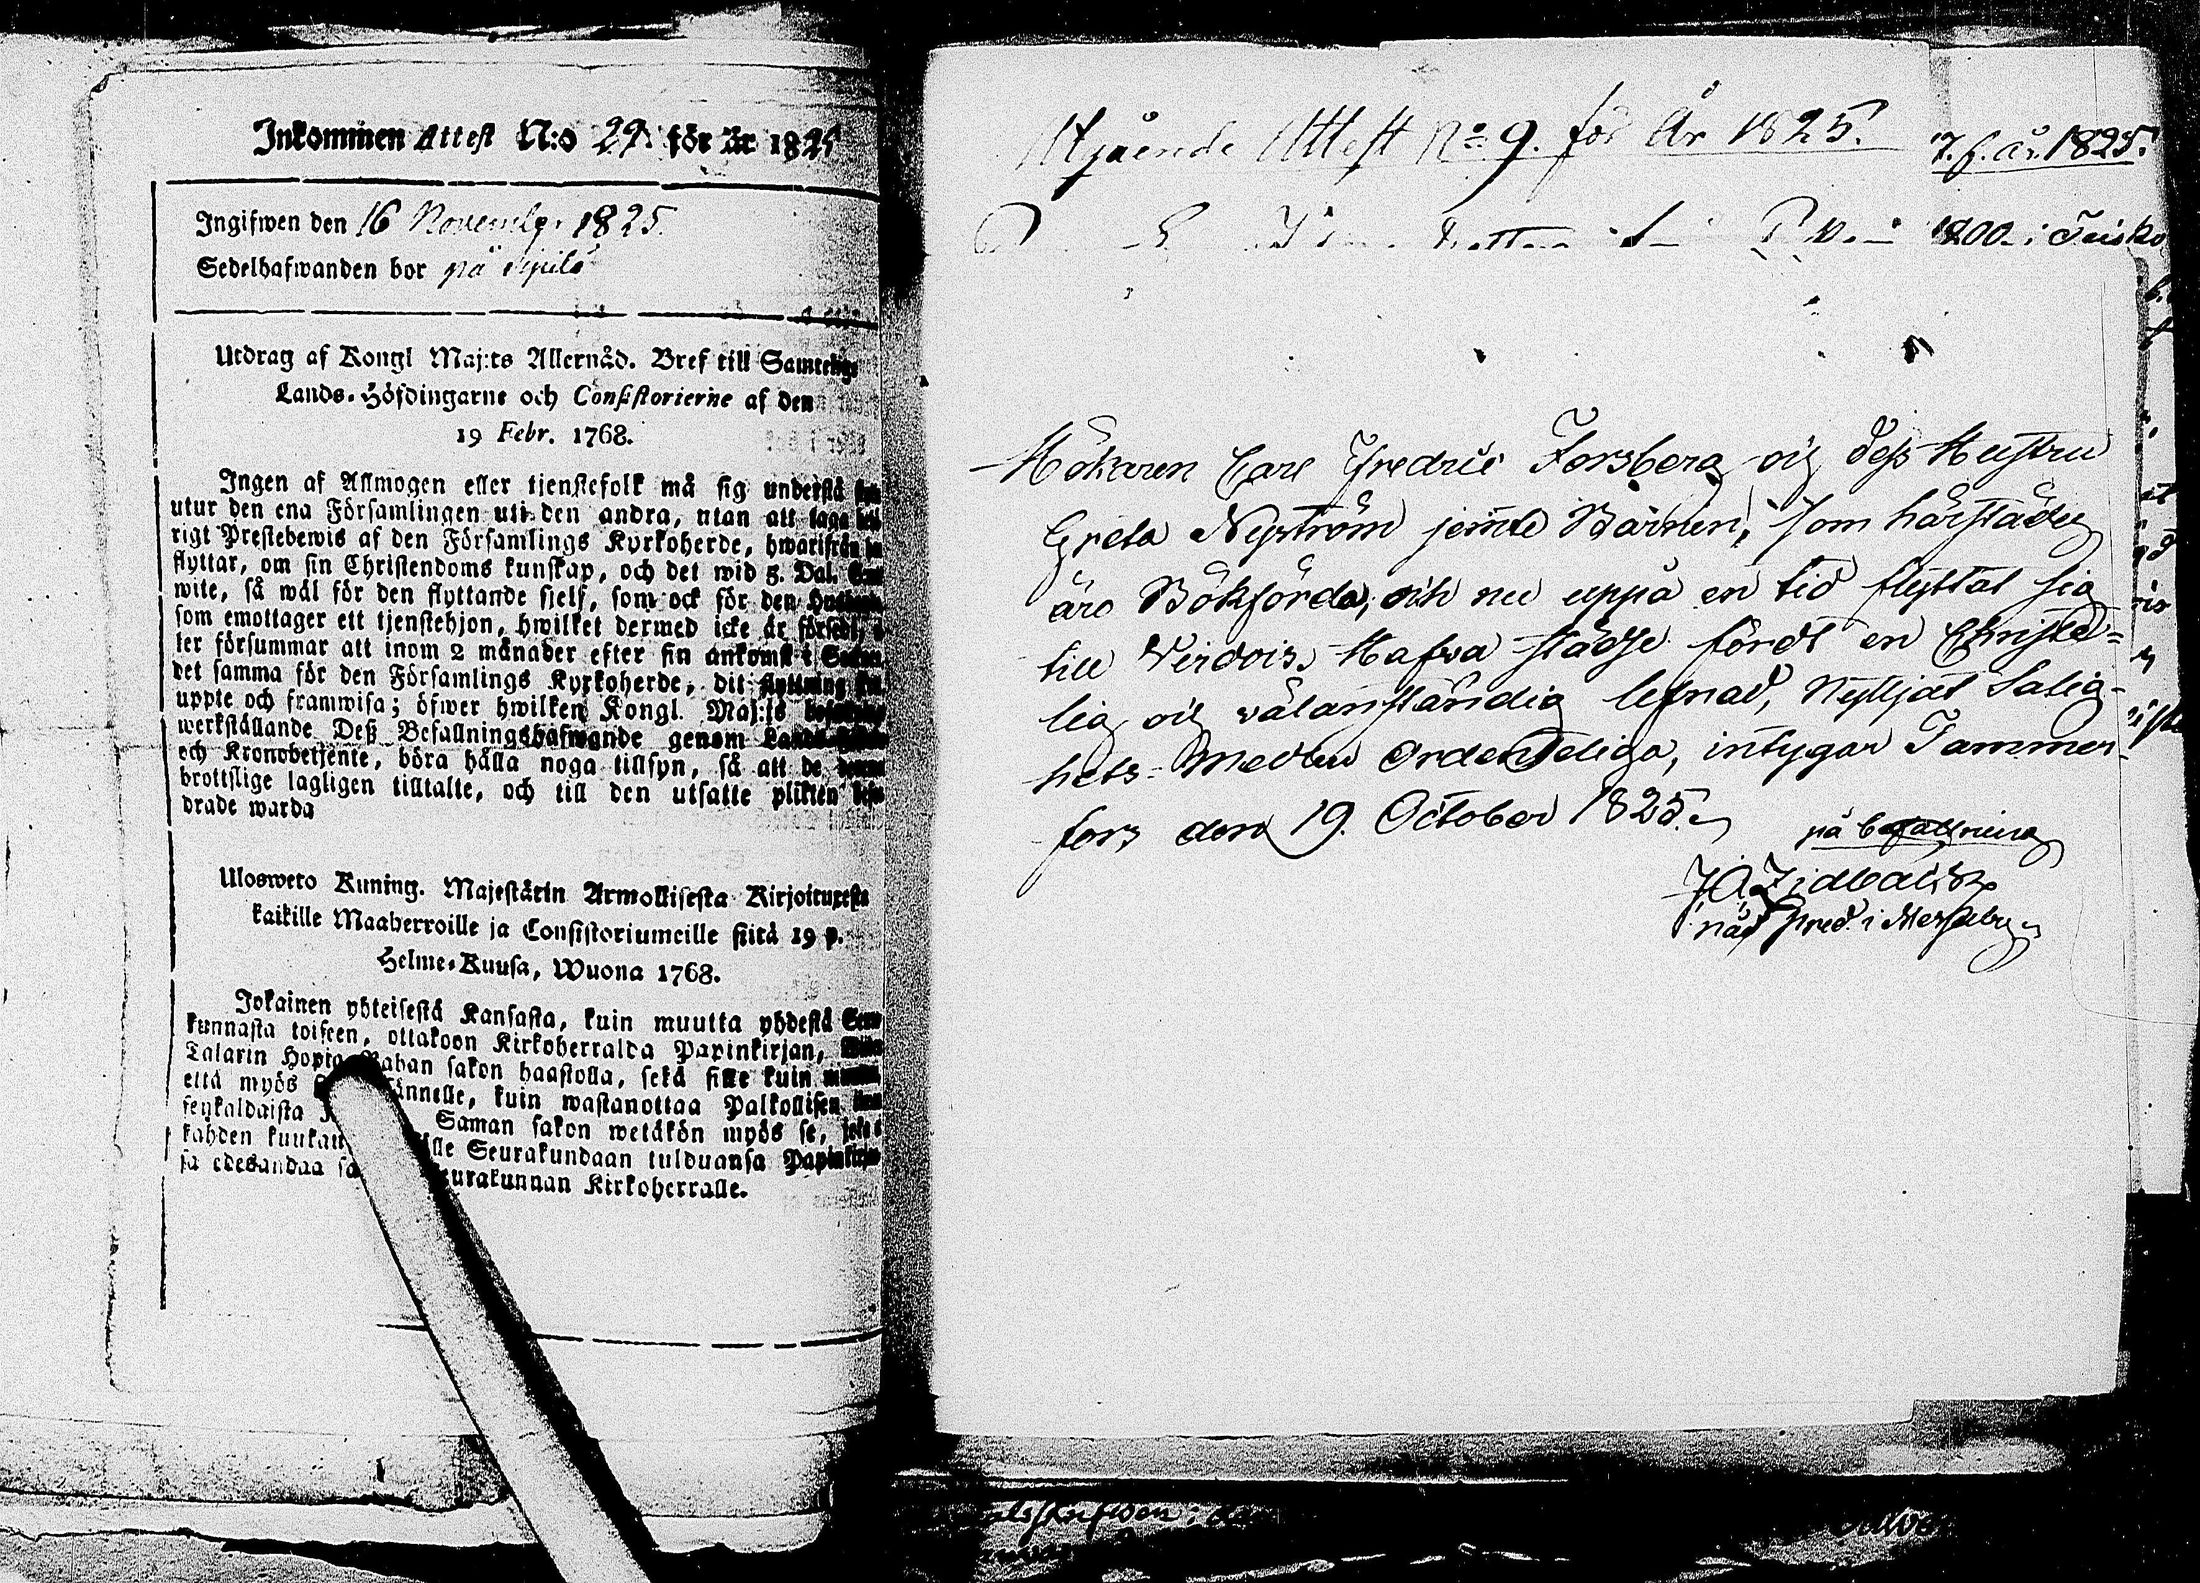 Inkommen Attest N:o 29. för år 1825
Ingifwen den 16 November 1825.
Sedelhafwanden bor på
Utdrag af Kongl Maj:ts Allernåd. Bref till Samtelige
Lands-Höfdingarne och Consistorierne af den
19 Febr. 1768.
Ingen af Allmogen eller tjenstefolk må sig understå
utur den ena Församlingen uti den andra, utan att taga
rigt Prestebewis af den Församlings Kyrkoherde, hwarifrån
flyttar, om sin Christendoms kunskap, och det wid 5. Dal.
wite, så wäl för den flyttande sielf, som ock för den
som emottager ett tjenstehjon, hwilket dermed icke är försedt,
ler försummar att inom 2 månader efter sin ankomst i
det samma för den Församlings Kyrkoherde, dit flyttning
uppte och framwisa; öfwer hwilken Kongl. Maj:ts
werkställande Deß Befallningshafwande genom
och Kronobetjente, böra hålla noga tillsyn, så att de
brottslige lagligen tilltalte, och till den utsatte plikten
drade warda
Ulosweto Kuning. Majestätin Armollisesta Kirjoituxesta
kaikille Maaherroille ja Consistoriumeille siitä 19 p.
Helme-Kuusa, Wuona 1768.
Jokainen yhteisestä Kansasta, kuin muutta yhdestä
kunnasta toiseen, ottakoon Kirkoherralda Papinkirjan,
Talarin Hopia Rahan sakon haastolla, sekä sille kuin
että myös ännelle, kuin wastanottaa Palkollisen
senkaldaista Saman sakon wetäkön myös se,
kahden kuukau lle Seurakundaan tulduansa
ja edesandaa sa eurakunnan Kirkoherralle.
Utgående Attest No 9. för År 1825.
7. f. år 1825.
1800 i Teisko
Hökaren Carl Fredric Forsberg och dess Hustru
Greta Nyström jemte Barnen, som härstädes
äro Bokförda, och nu uppå en tid flyttat sig
till Virdois. Hafva städse fördt en Christe=
lig och välanständig lefnad, Nyttjat Salig-
hets-Medlen Ordenteliga, intygar Tammer-
fors den 19. October 1825.
på befallning
nåd pred. i Messuby